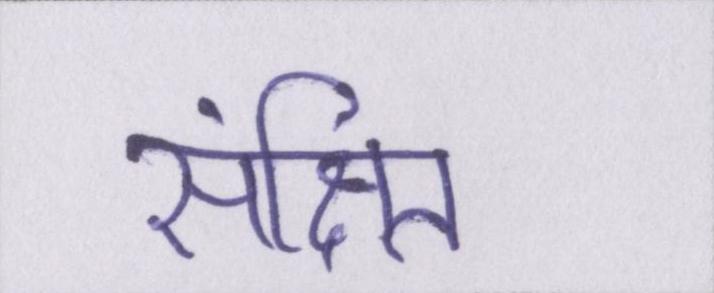 संक्षिप्त